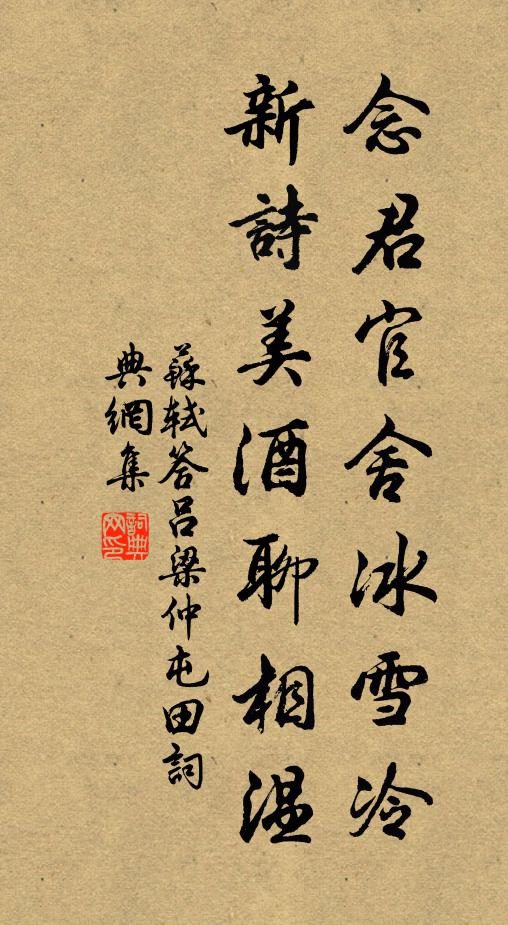 念君官舍冰雪冷
新詩美酒聊相温
蘇軾答呂梁仲屯田詞
典網集
詞典網印